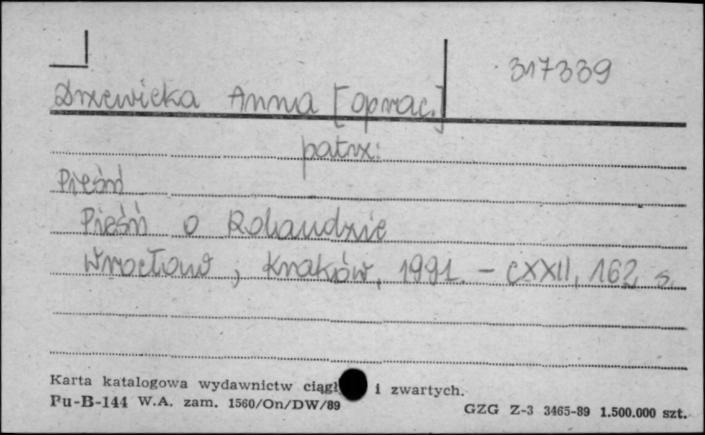 317339
Drzewicka Anna [oprac.]
patrz:
Pieśń
Pieśń o Rolandzie
Wrocław, Kraków, 1991. - CXXII, 162 s.
Karta katalogowa wydawnictw ciągł i zwartych.
Pu-B-144 W.A. zam. 1560/On/DW/89 GZG Z-3 3465-89 1.500.000 szt.